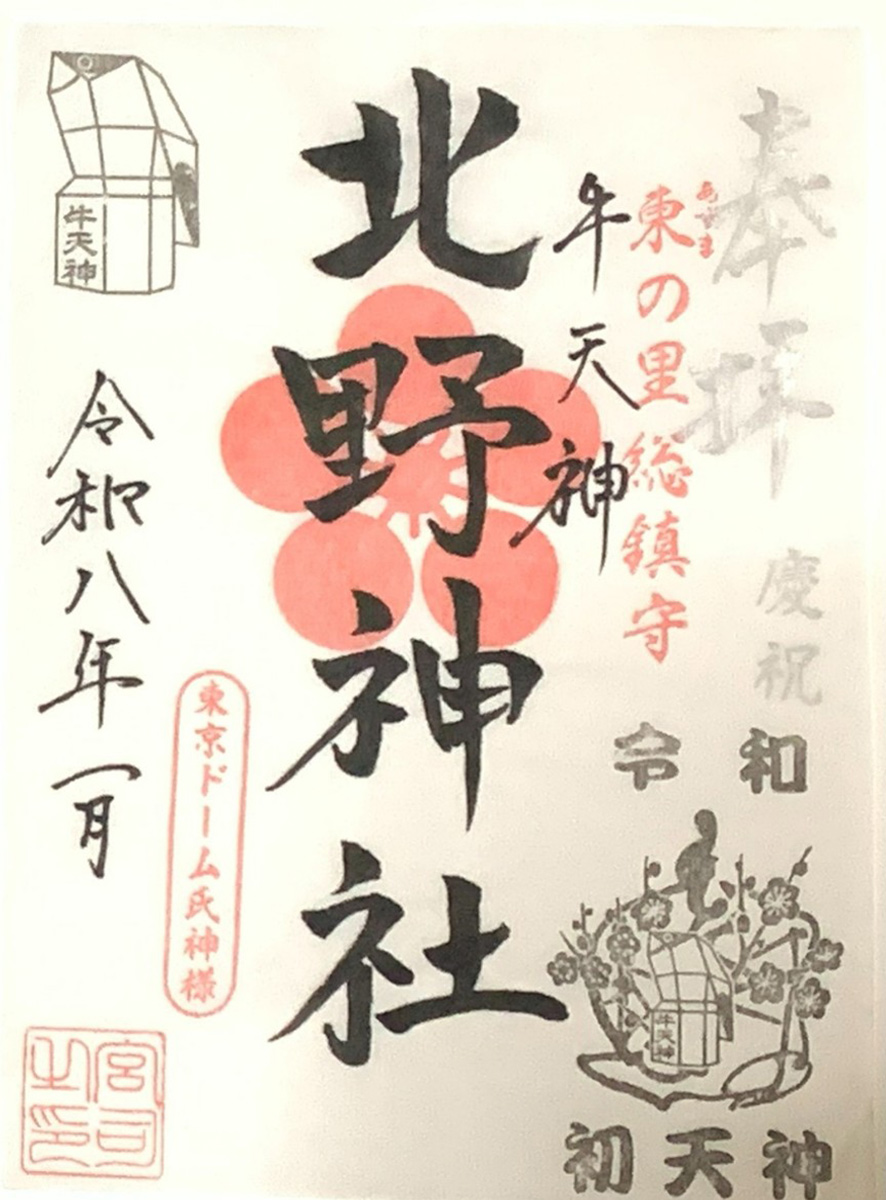 奉拝
慶祝
令和
牛天神
初天神
あずま
東の里総鎮守
牛天神
北野神社
東京ドーム氏神様
牛天神
令和八年一月
宮司
之印